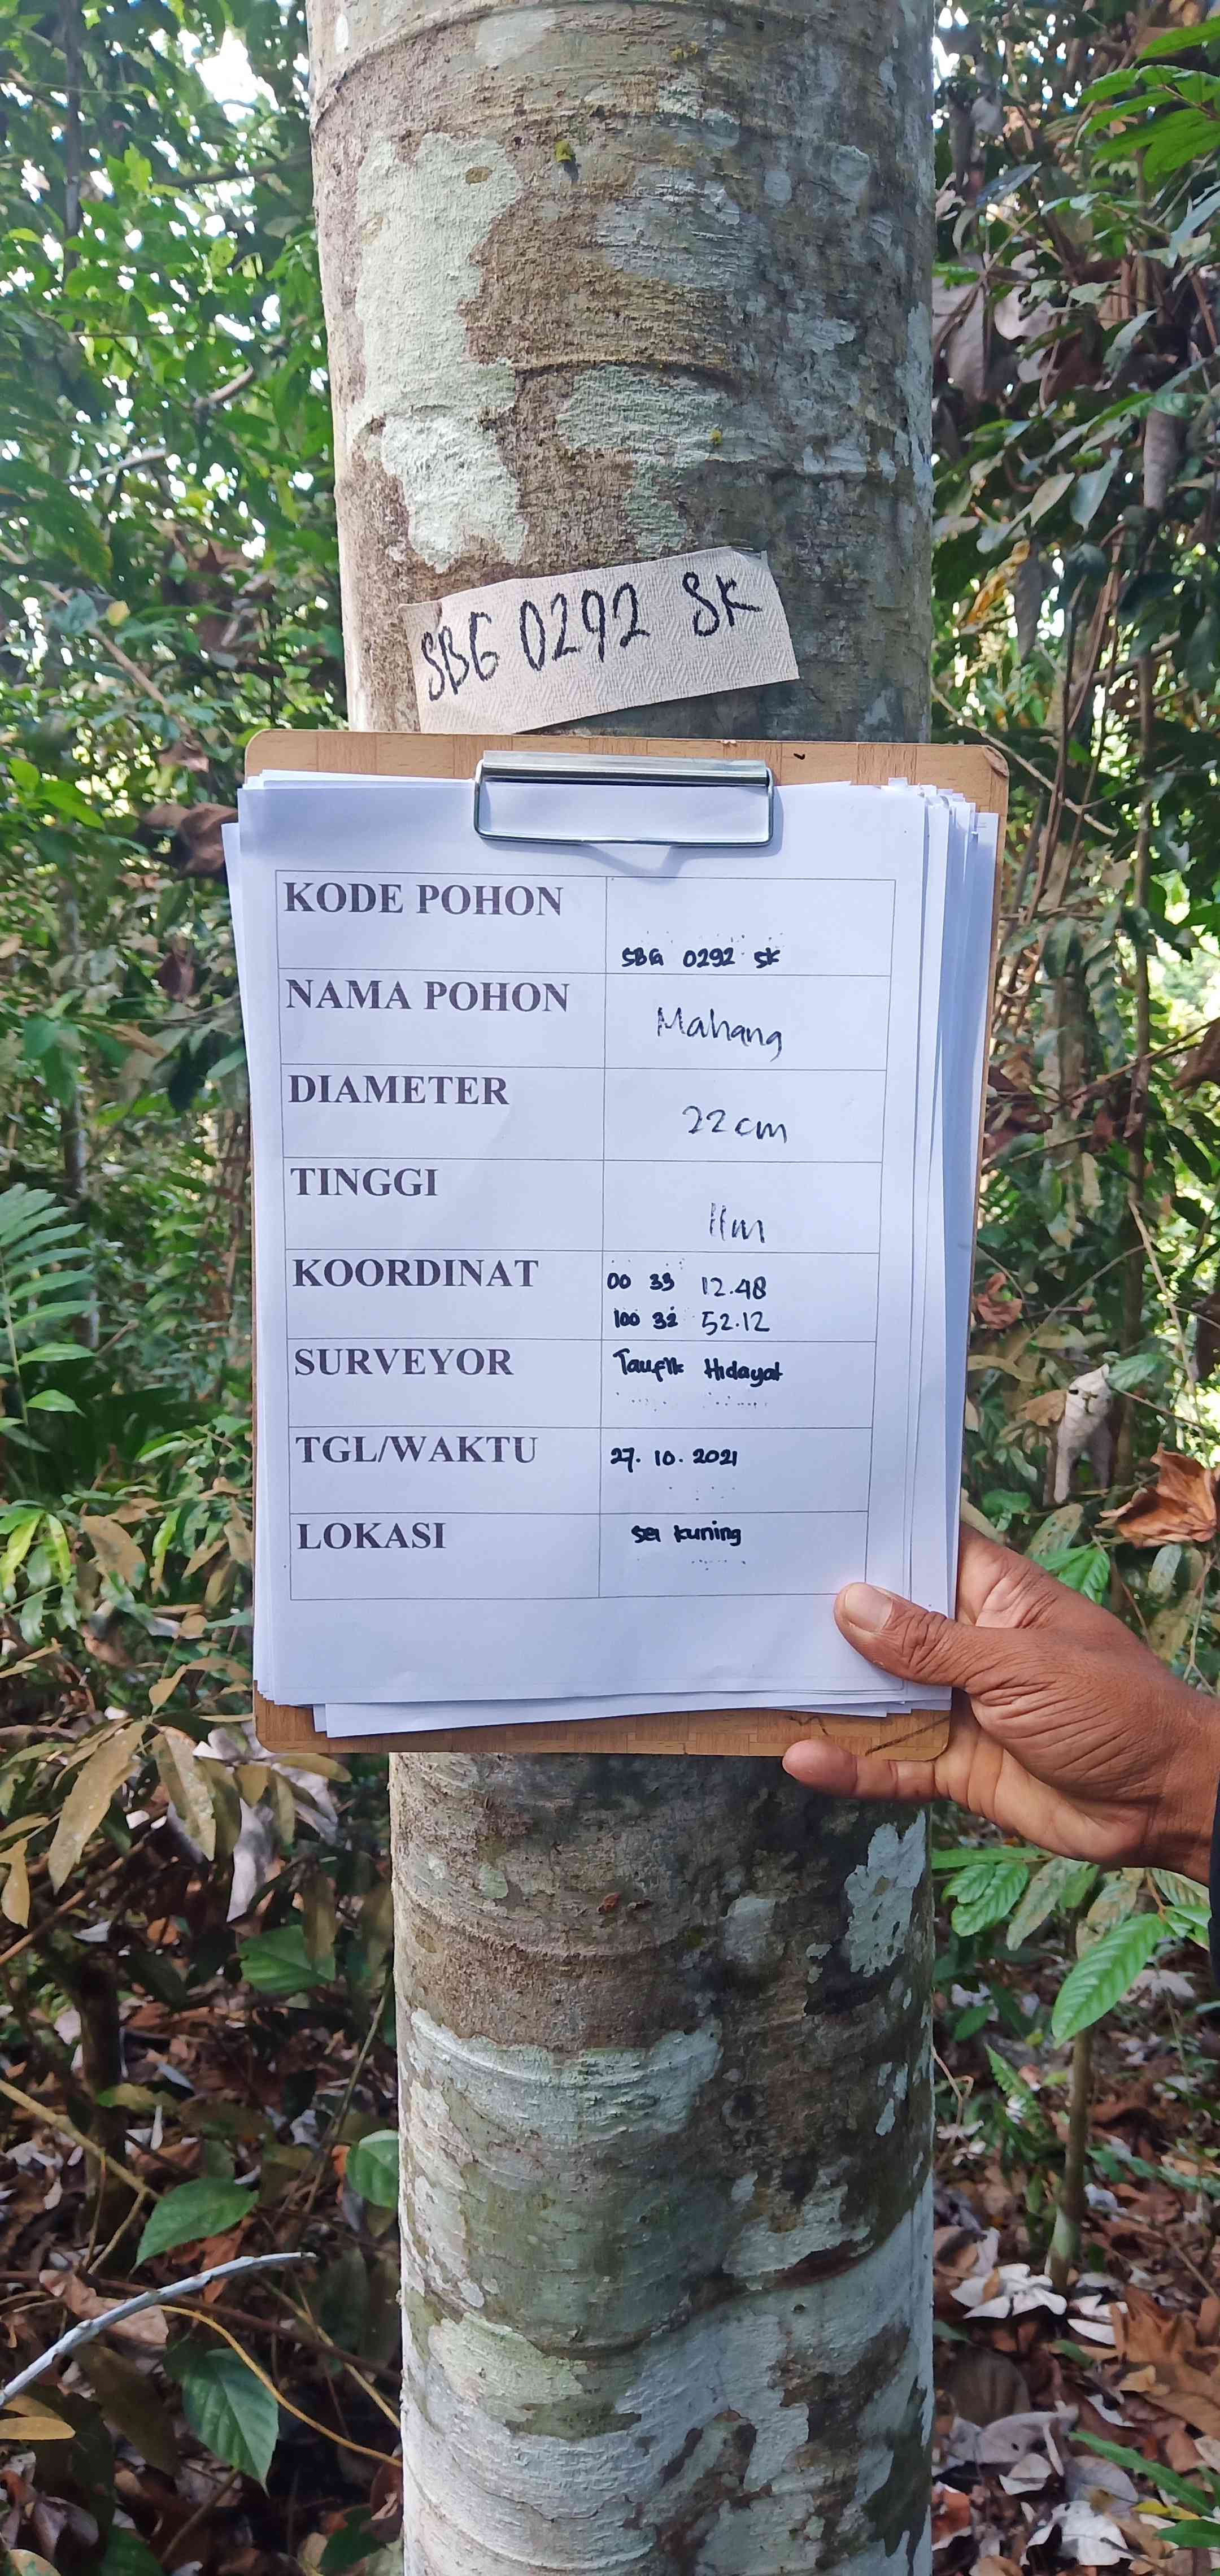 SBG 0292 SK
KODE POHON
SBG 0292 SK
NAMA POHON
Mahang
DIAMETER
22 cm
TINGGI
11m
KOORDINAT
00 33 12.48
100 32 52.12
SURVEYOR
Taufik Hidayat
TGL/WAKTU
27. 10. 2021
LOKASI
Sei Kuning